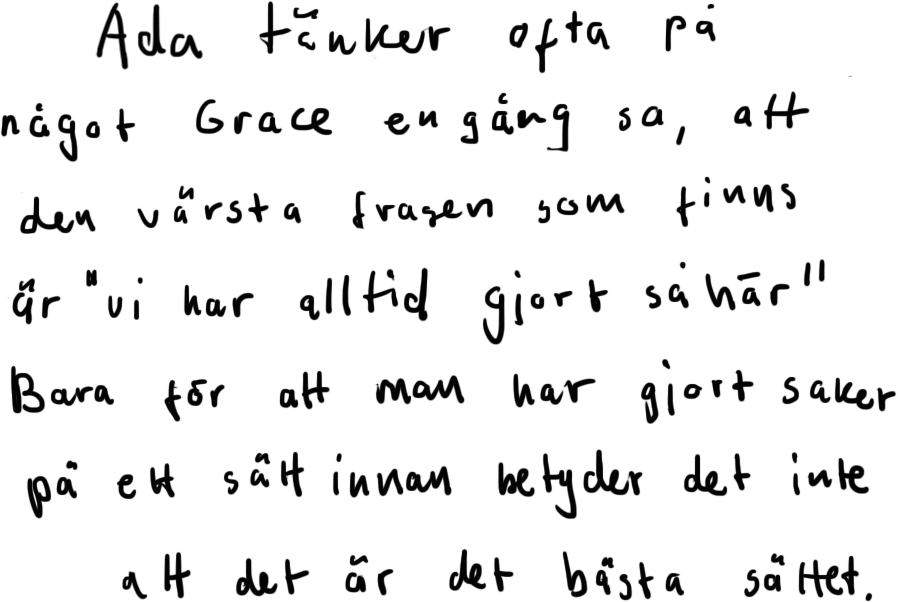 Ada tänker ofta på
något Grace en gång sa, att
den värsta frasen som finns
är "vi har alltid gjort såhär"
Bara för att man har gjort saker
på ett sätt innan betyder det inte
att det är det bästa sättet.